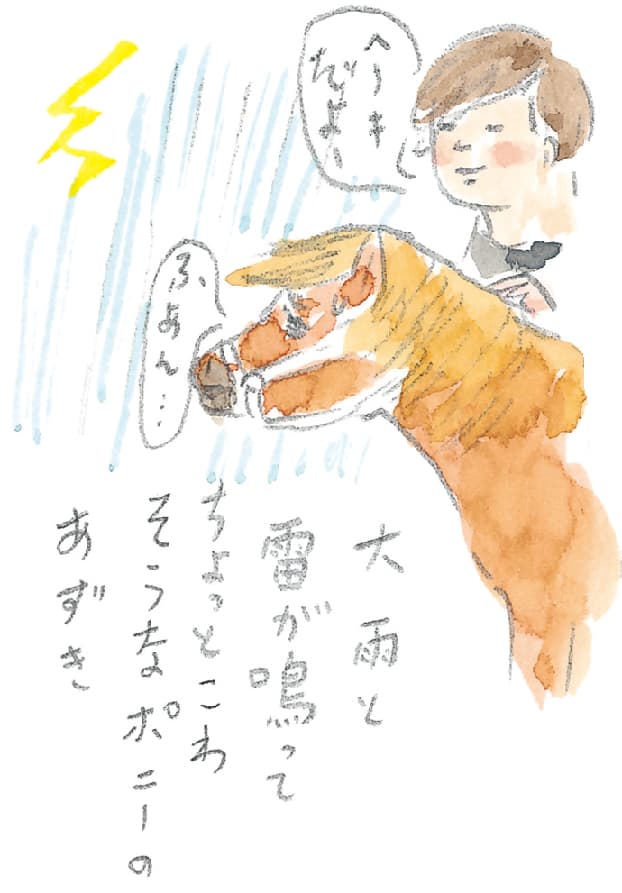 へいき
だよ〜
ふあん…
大雨と
雷が鳴って
ちょっとこわ
そうなポニーの
あずき